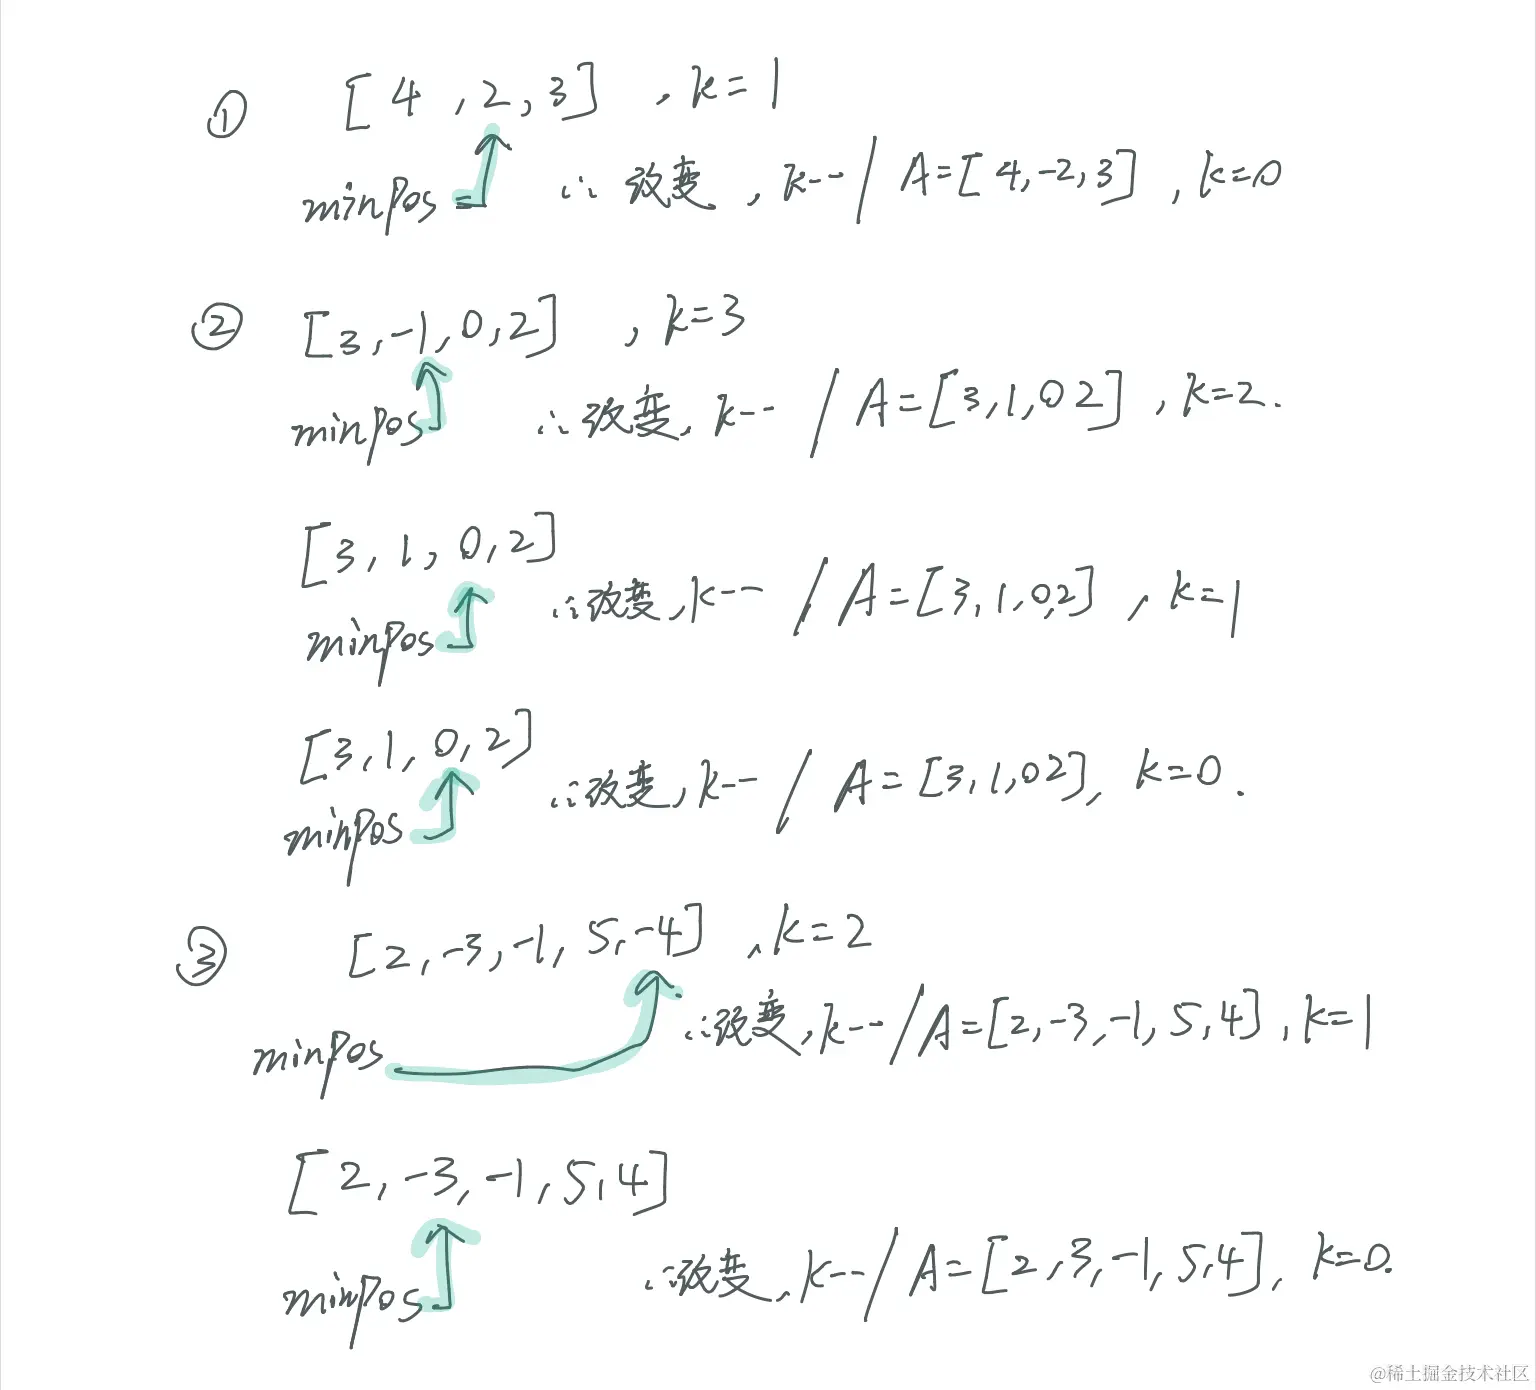 ① [4,2,3] ,k=1
minPos ∴改变,k--/A=[4,-2,3],k=0
② [3,-1,0,2] ,k=3
minPos ∴改变,k--/A=[3,1,0 2],k=2.
[3,1,0,2]
minPos ∴改变,k--/A=[3,1,0,2],k=1
[3,1,0,2]
minPos ∴改变,k--/A=[3,1,0 2],k=0.
③ [2,-3,-1,5,-4] ,k=2
minPos ∴改变,k--/A=[2,-3,-1,5,4],k=1
[2,-3,-1,5,4]
minPos ∴改变,k--/A=[2,3,-1,5,4],k=0.
@稀土掘金技术社区